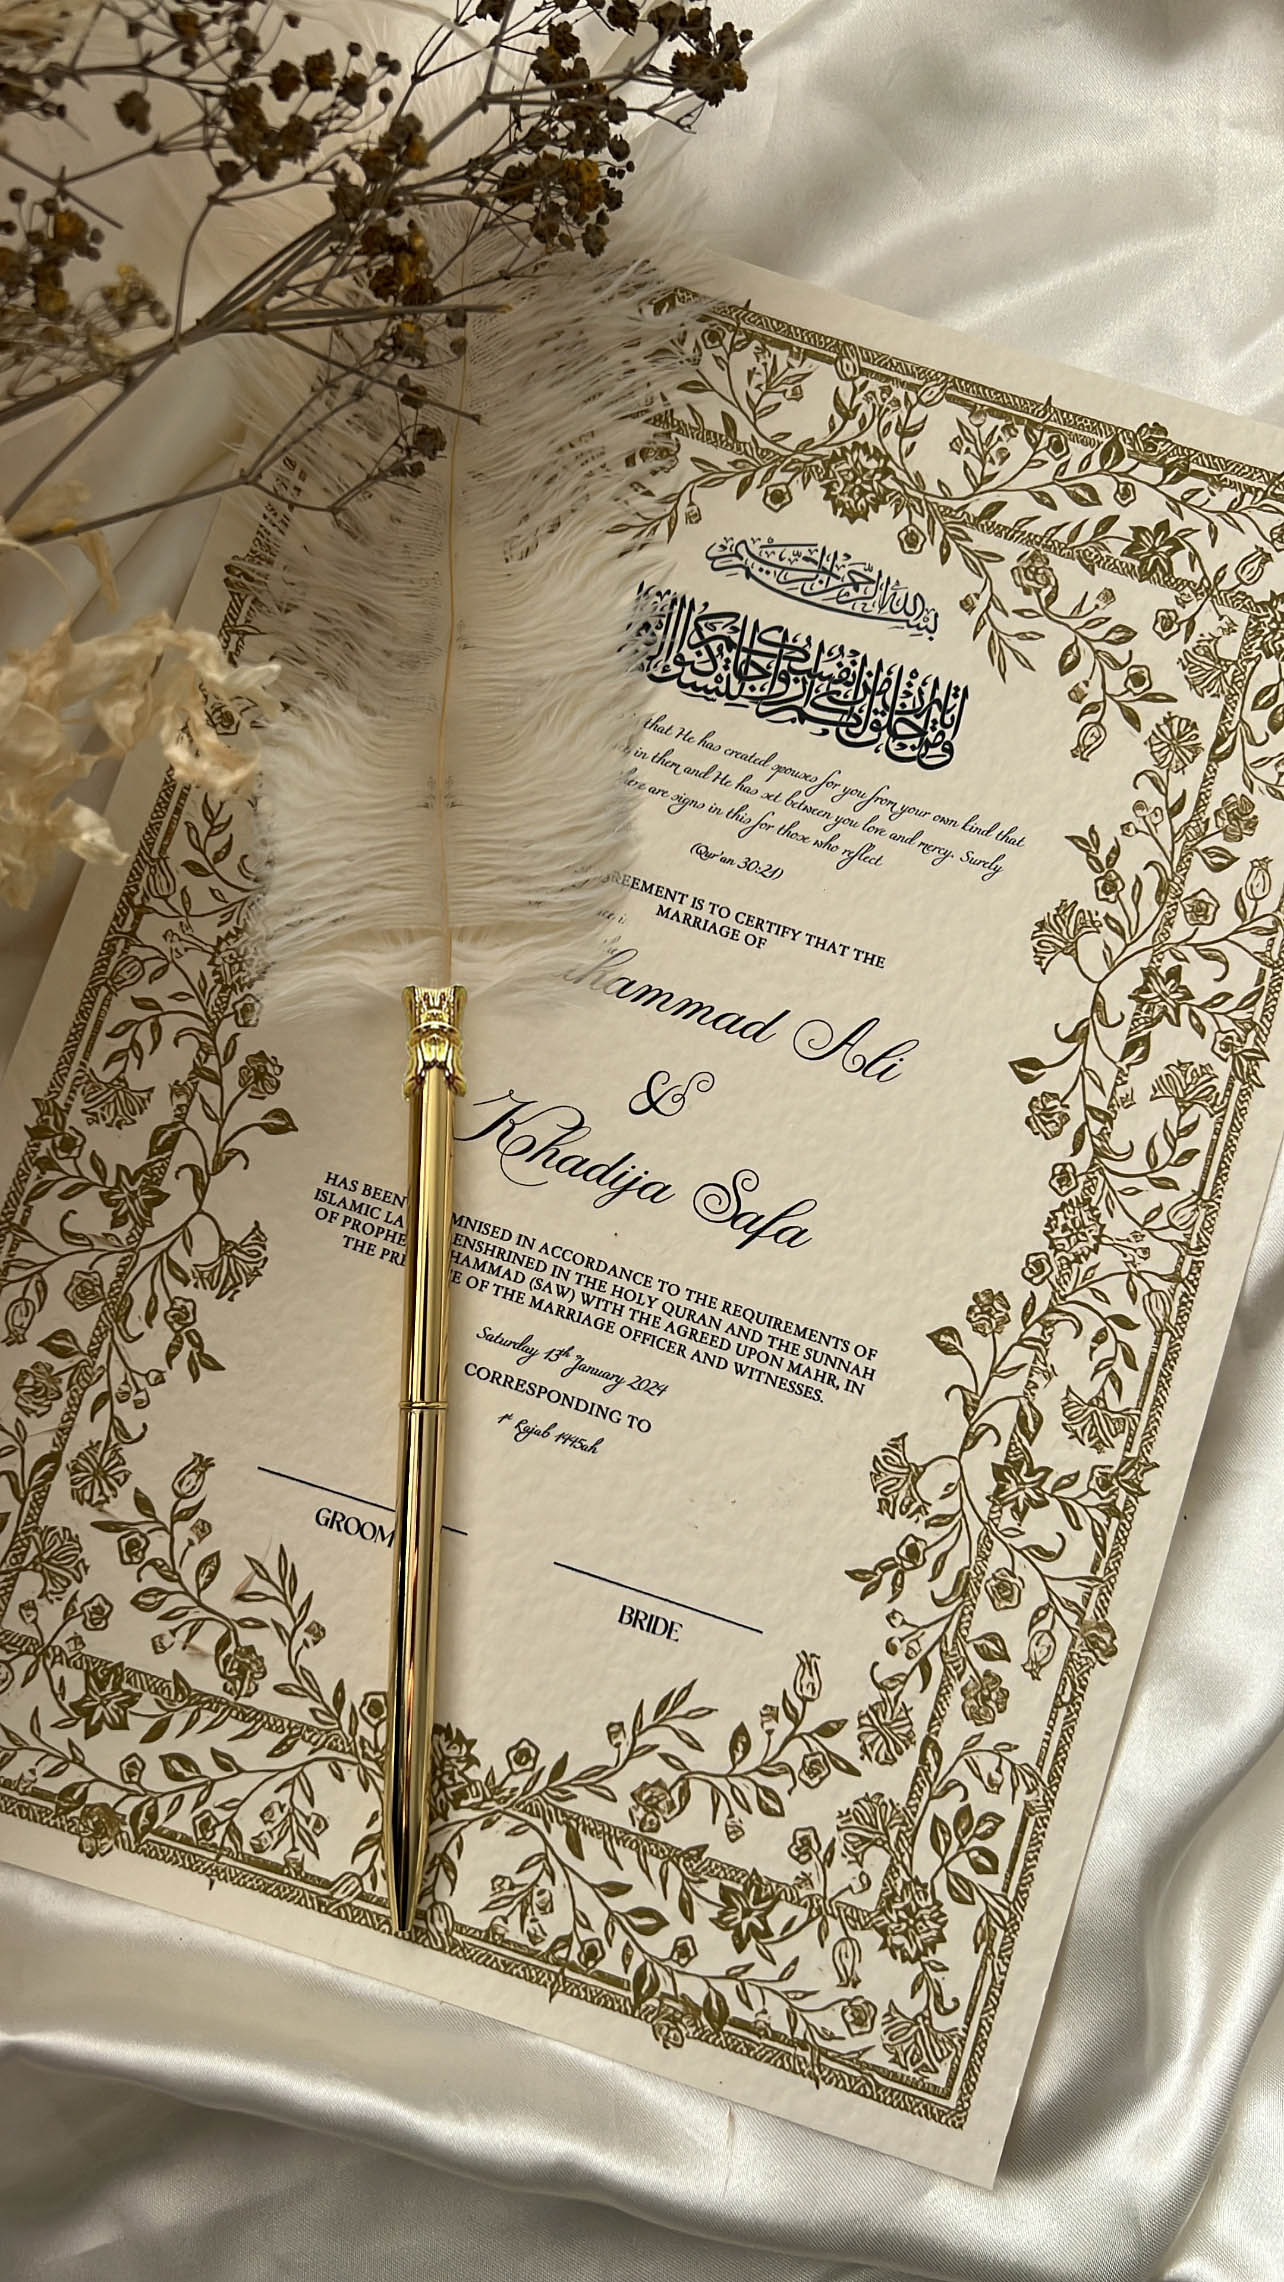 بسم الله الرحمن الرحيم
ومن آياته أن خلق لكم من أنفسكم أزواجا لتسكنوا
that He has created spouses for you from your own kind that
in them and He has set between you love and mercy. Surely
there are signs in this for those who reflect
(Qur'an 30:21)
AGREEMENT IS TO CERTIFY THAT THE
MARRIAGE OF
hammad Ali
&
Khadija Safa
HAS BEEN MNISED IN ACCORDANCE TO THE REQUIREMENTS OF
ISLAMIC LA ENSHRINED IN THE HOLY QURAN AND THE SUNNAH
OF PROPHE HAMMAD (SAW) WITH THE AGREED UPON MAHR, IN
THE PRE E OF THE MARRIAGE OFFICER AND WITNESSES.
Saturday 13th January 2024
CORRESPONDING TO
1st Rajab 1445ah
GROOM
BRIDE